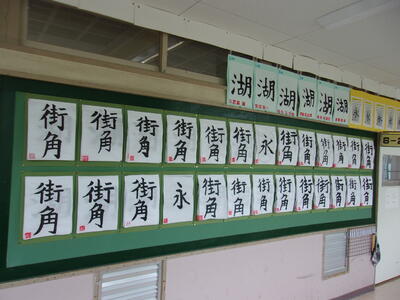 湖 湖 湖 湖 湖 湖
街角 街角 街角 街角 街角 街角 永 街角 街角 街角 街角 街角 街角
街角 街角 街角 永 街角 街角 街角 街角 街角 街角 街角 街角 街角
6-2